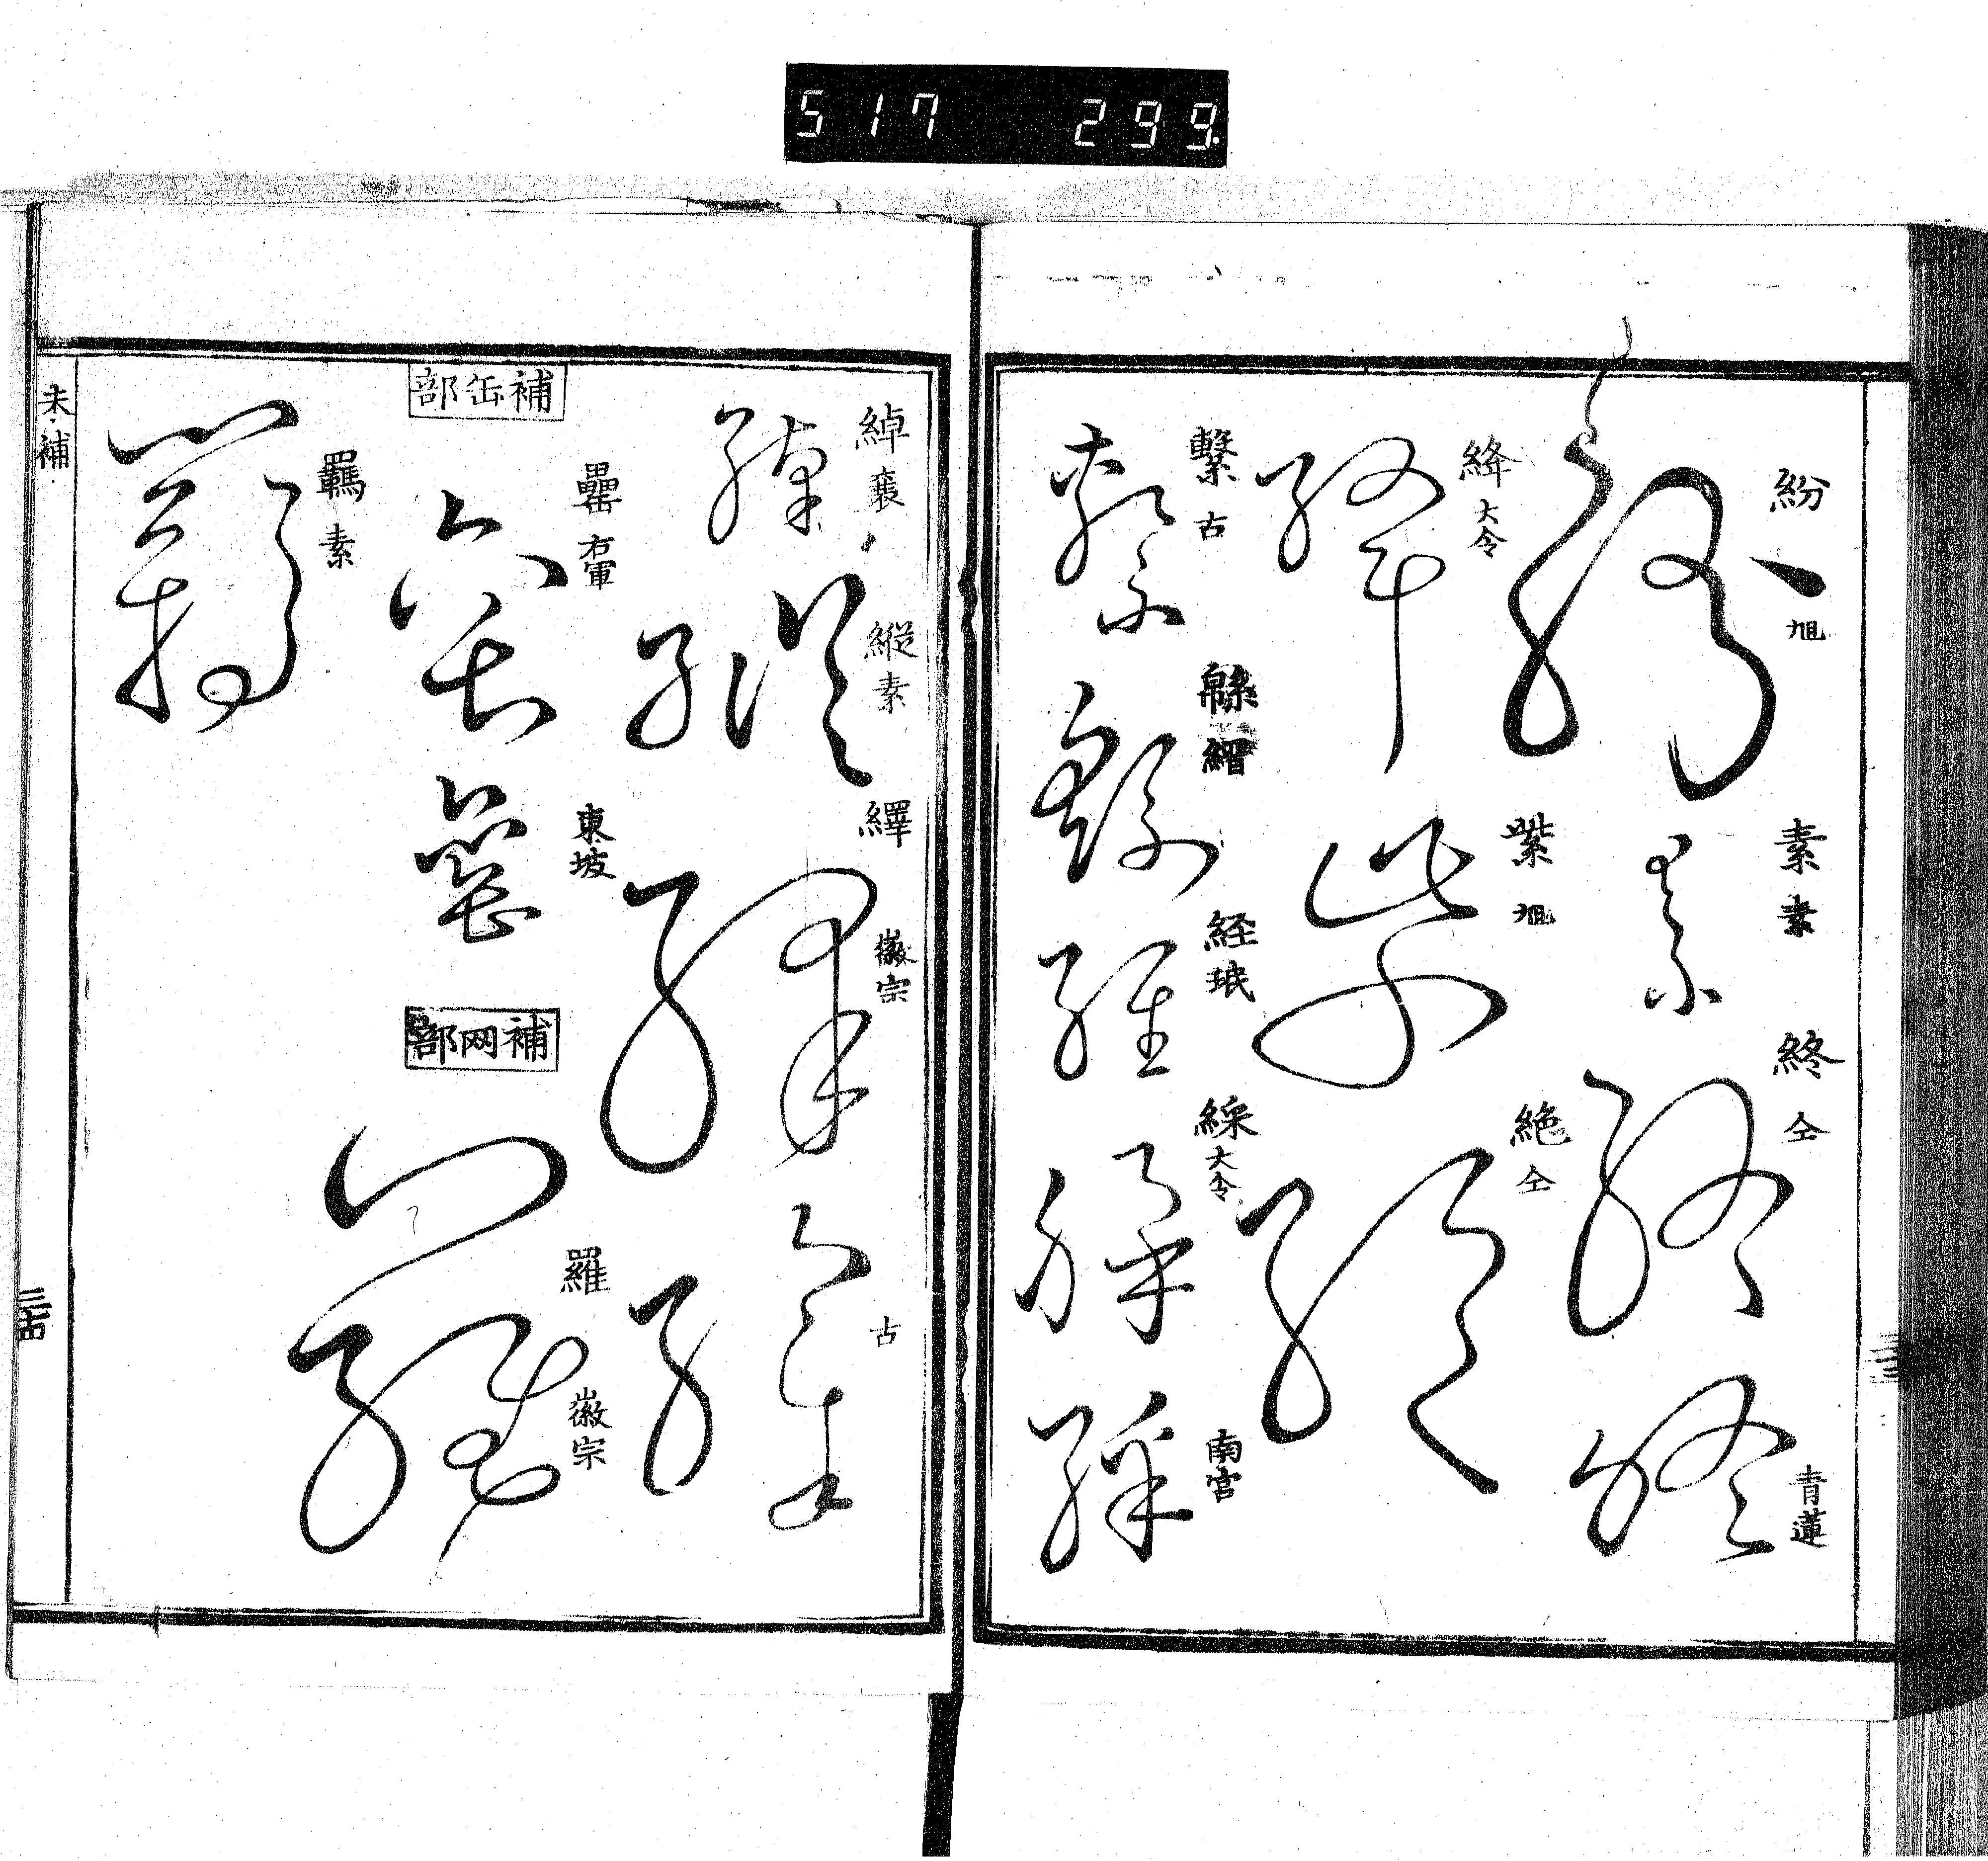 517 299
紛 旭
素 素
終 仝
青蓮
絳 大令
紫 旭
絶 仝
繋 古
緜 縉
経 珉
綵 大令
南宮
綽 襄
縦 素
繹 徽宗
古
補缶部
罍 右軍
東坡
補网部
羅 徽宗
羈 素
未補
三十四